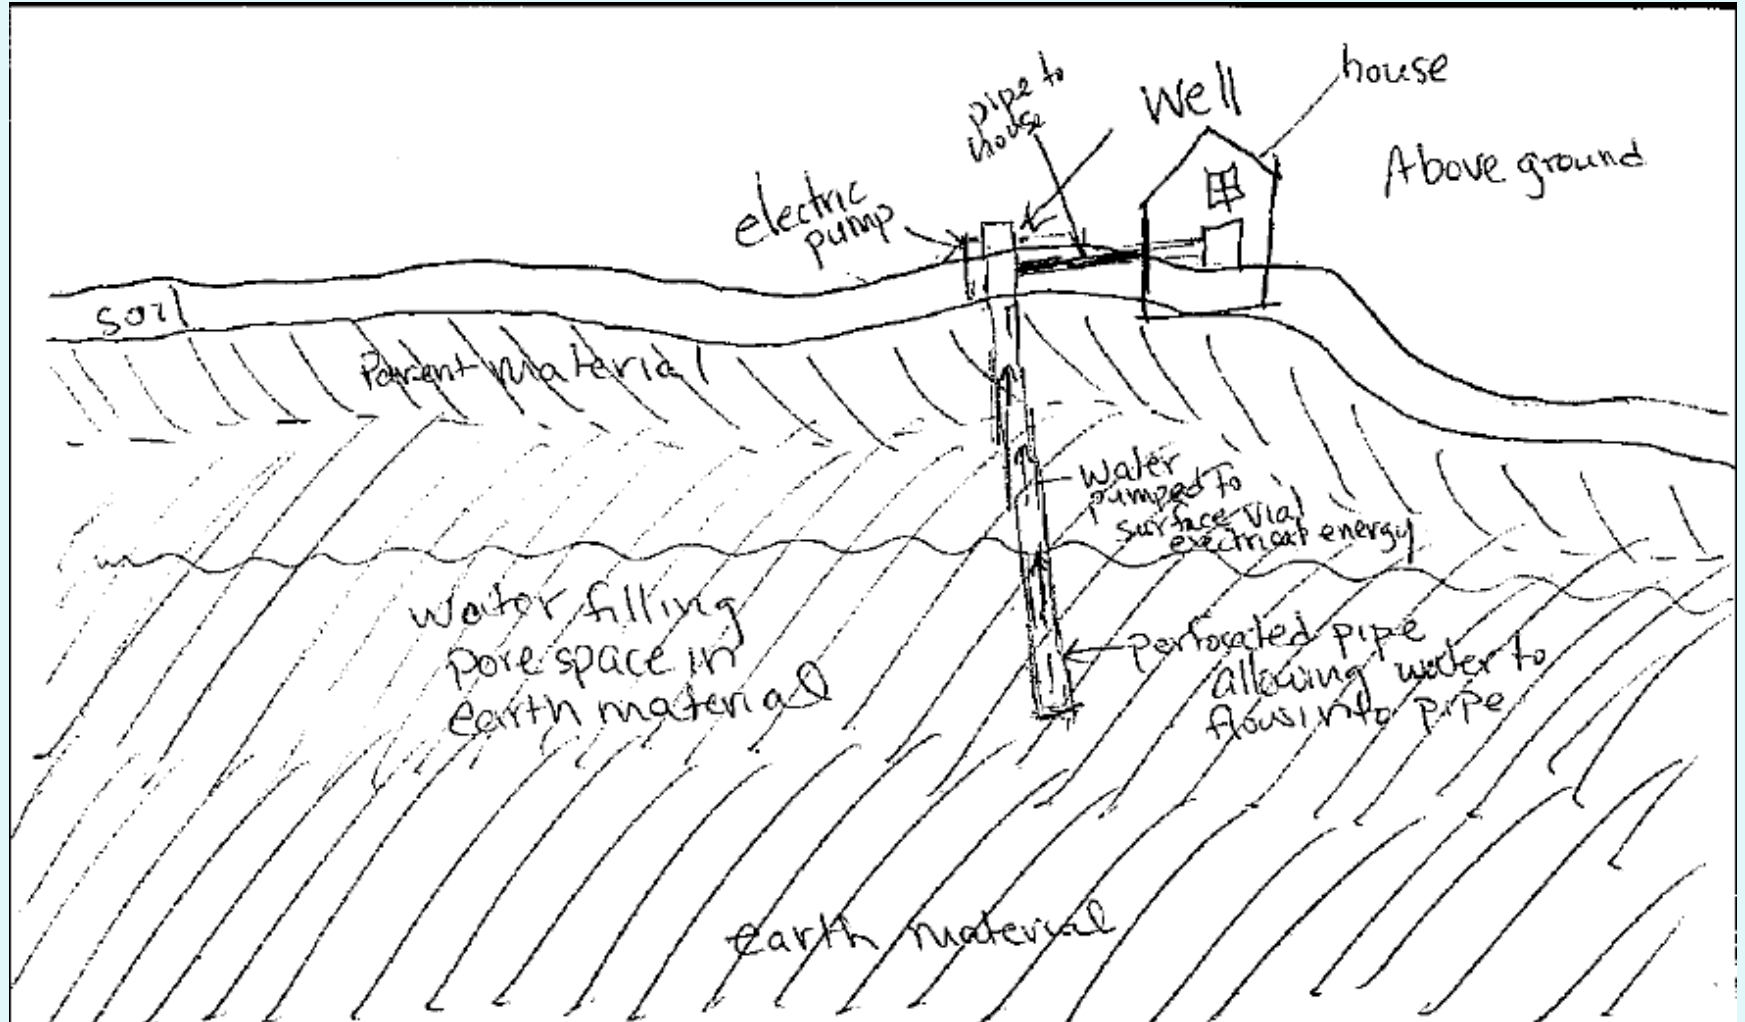 house
Well
pipe to
house
Above ground
electric
pump
soil
Parent Material
Water
pumped to
surface via
electrical energy
Water filling
pore space in
earth material
perforated pipe
allowing water to
flow into pipe
earth material